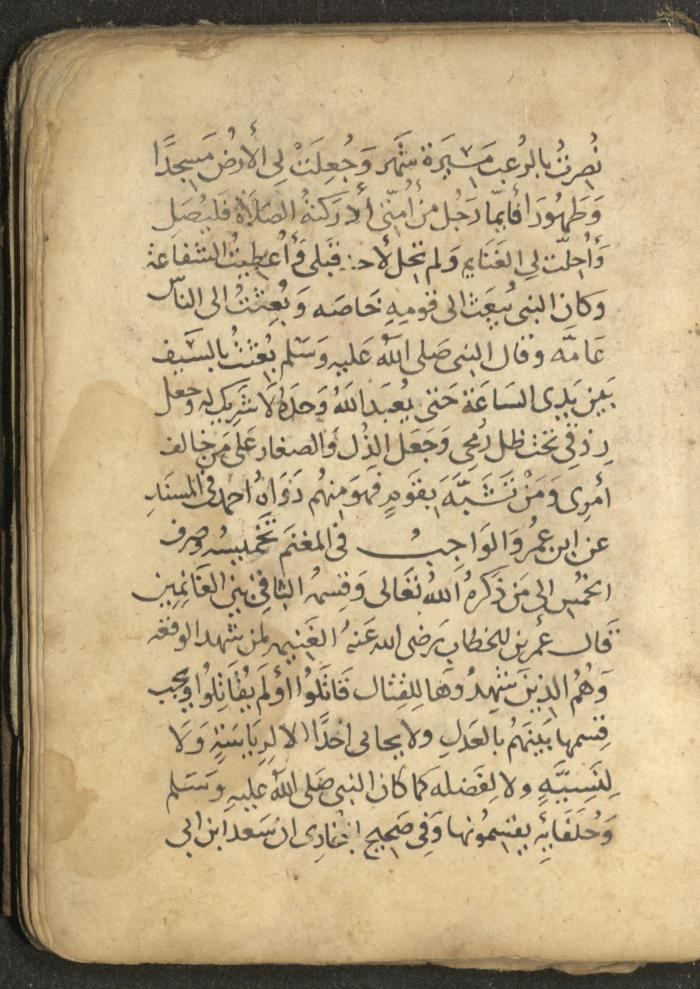 نُصِرتُ بالرُعبِ مَسِيَرة شَهر وَجُعِلَتْ لِي الأَرضُ مَسجِدًا
وَطَهُورًا فَايمّا رَجُل مِن أُمتّي أدرَكتهُ الصّلاَة فَليُصَل
وَأُحِلّت لِي الغَنَايم وَلم تحل لأحد قَبلى وَأُعطِيتُ الشفاعَة
وَكان النبى يُبعَث الى قومِهِ خَاصَه وَبُعِثتُ الى النَاسِ
عَامَّه وَقال النبى صَلى اللهُ عَليهِ وَسَلم بُعثتُ بالسَيف
بَين يَدِى السَاعَة حَتى يُعبَد اللهُ وَحدَهُ لا شَرِيك له وجعل
رزقي تحت ظل رُمحِي وَجَعَل الذِل وَالصغار عَلى مَن خالف
أمرِى وَمَنْ تَشَبَّهَ بقَومٍ فهوَ مِنهُم رَوَاهُ احمد في المسنَد
عن ابن عمُر وَالوَاجِبُ في المغنَم تَخميسه وصرف
الخمُس الى مَن ذكرهُ اللهُ تَعَالى وَقِسمهُ الباقي بين الغَانِمين
قال عُمر بن الخطابِ رَضى الله عَنهُ الغَنيمه لمن شهد الوقعَه
وَهُمُ الذِينَ شهِدُوهَا لِلقتال قَاتَلُوا أولَم يُقَاتِلُوا ويجب
قِسمهَا بَينَهُم بالعَدلِ ولا يحابى احَدًا لا لرِيَاسَتِهِ وَلا
لِنَسِبَّهِ ولا لِفَضله كما كان النبى صَلى اللهُ عَليهِ وَسَلم
وَخُلَفَائِه يقسِمونَها وَفي صَحِيح البخارِى انْ سَعد ابن ابى